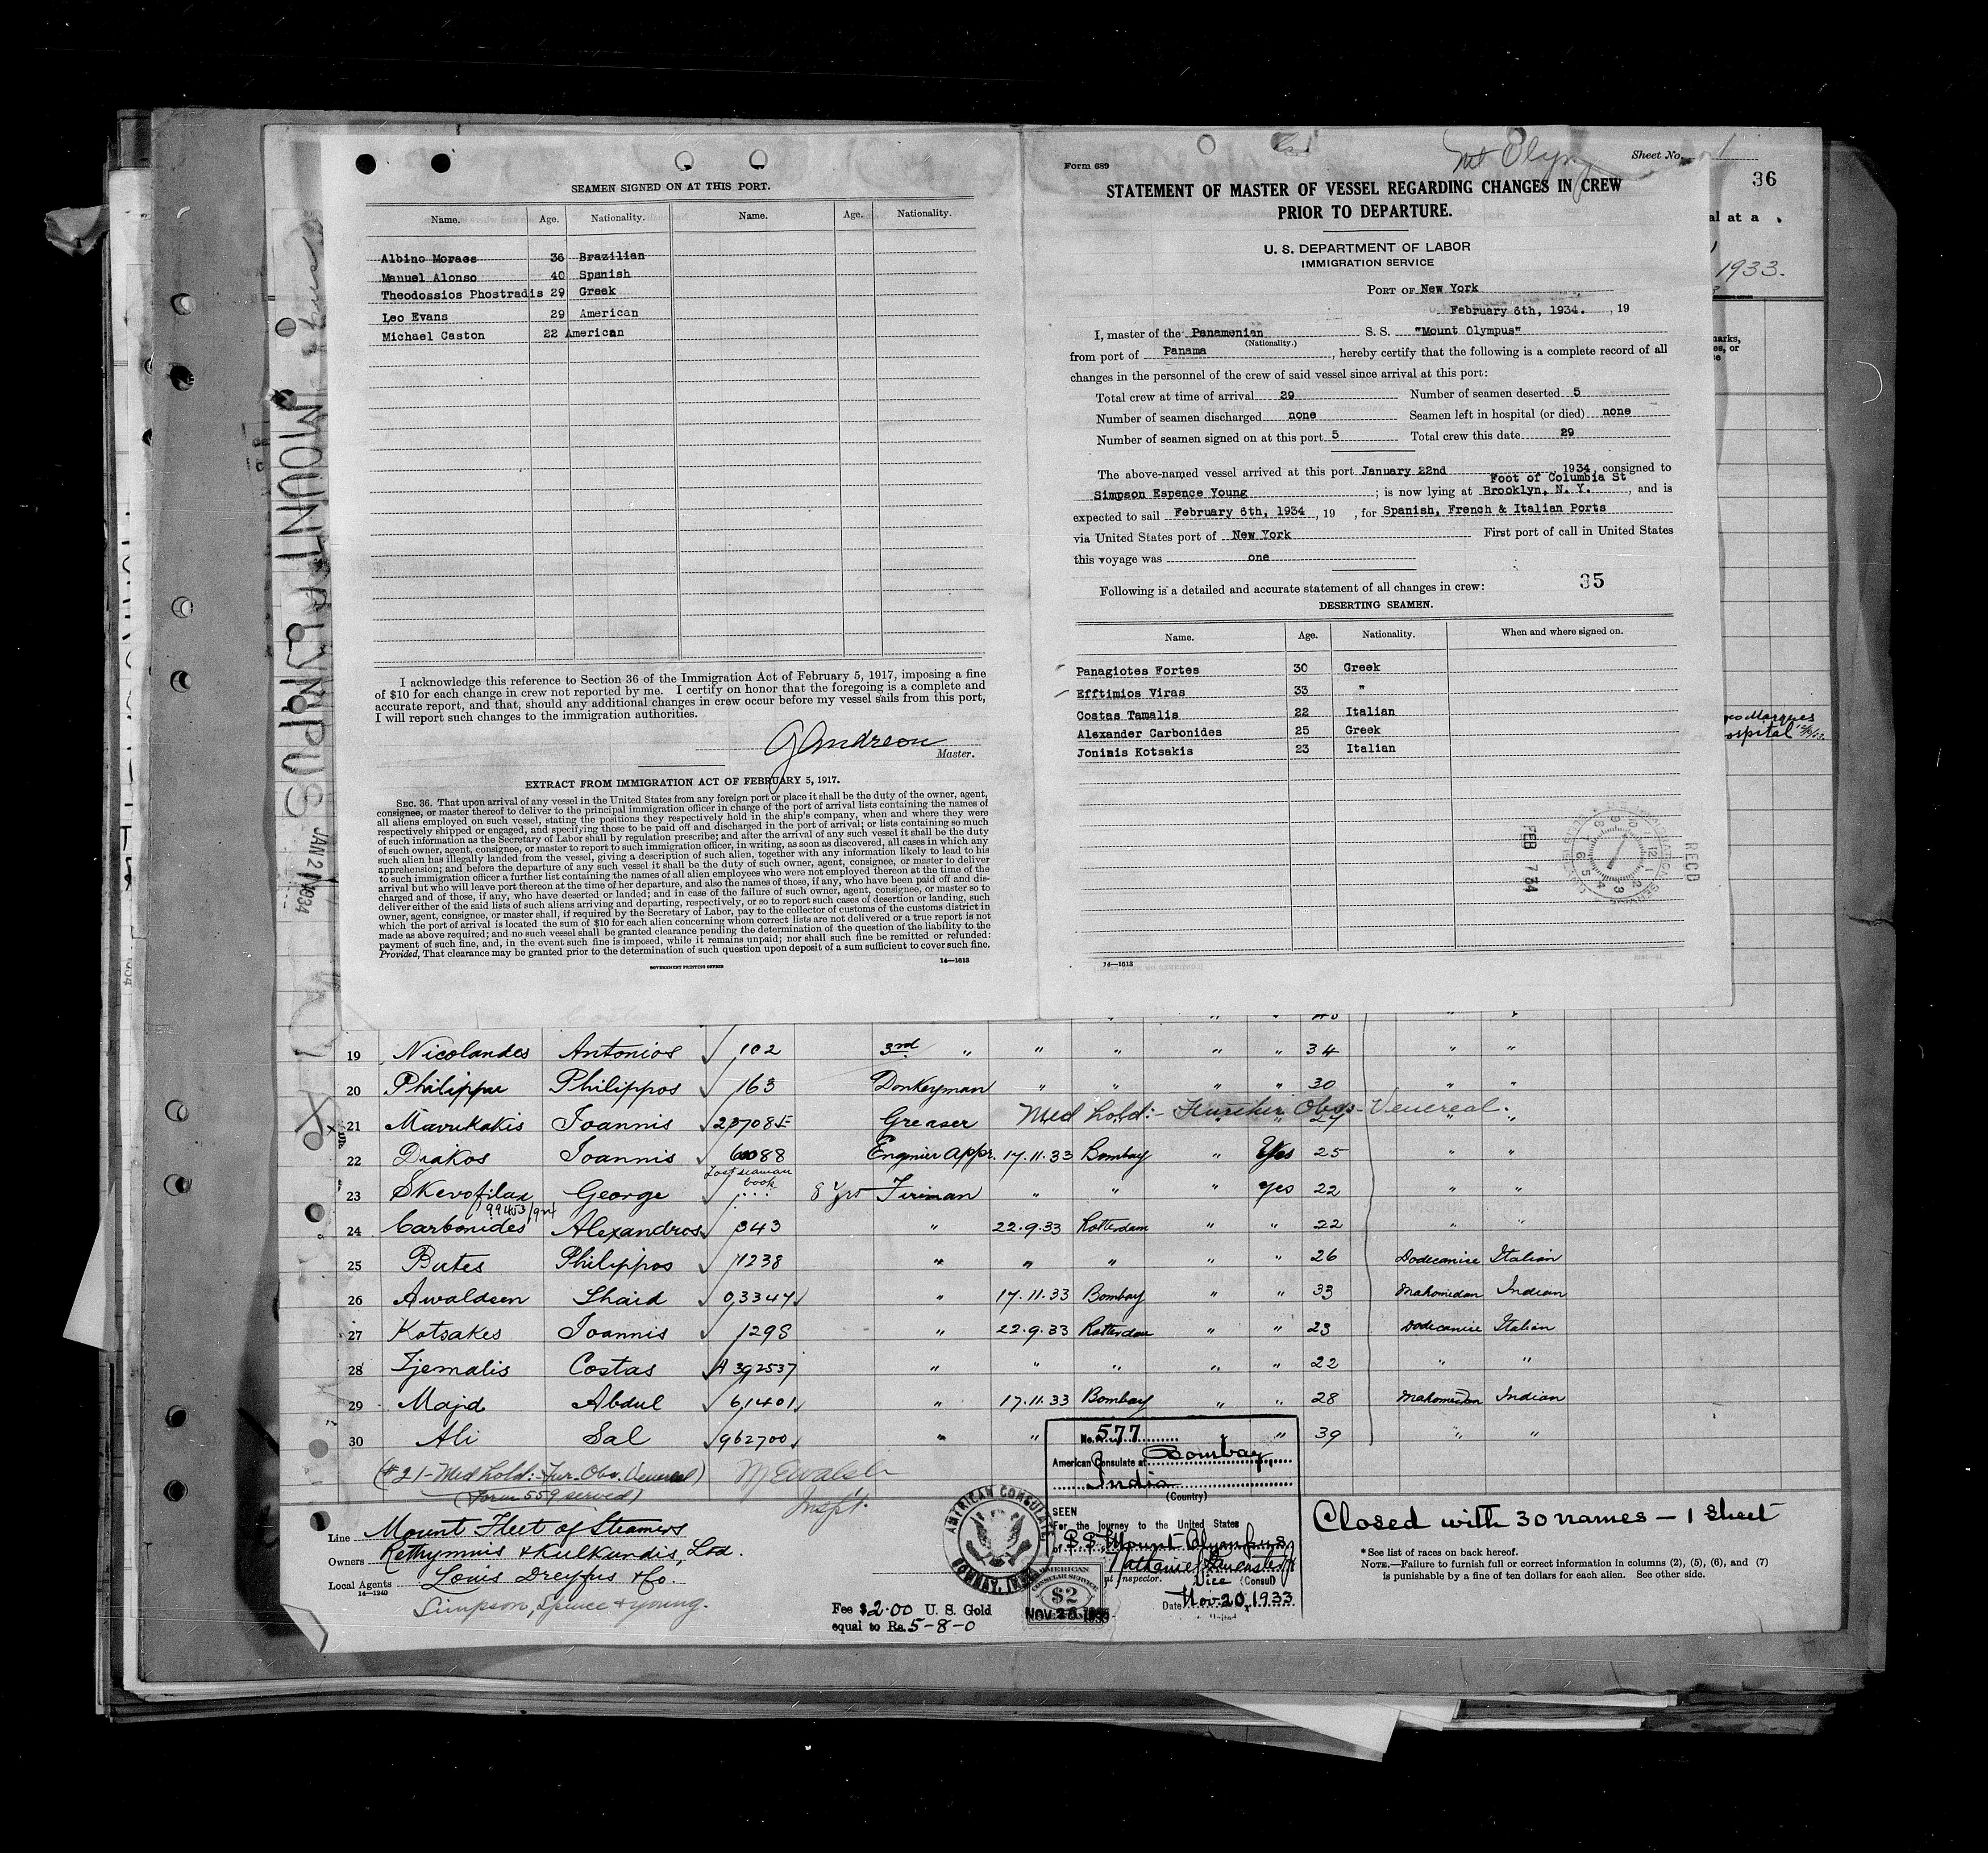 SEAMEN SIGNED ON AT THIS PORT.
Name. Age. Nationality. Name. Age. Nationality.
Albino Moraes 36 Brazilian
Manuel Alonso 40 Spanish
Theodossios Phostradis 29 Greek
Leo Evans 29 American
Michael Caston 22 American
I acknowledge this reference to Section 36 of the Immigration Act of February 5, 1917, imposing a fine
of $10 for each change in crew not reported by me. I certify on honor that the foregoing is a complete and
accurate report, and that, should any additional changes in crew occur before my vessel sails from this port,
I will report such changes to the immigration authorities.
GAndreou
Master.
EXTRACT FROM IMMIGRATION ACT OF FEBRUARY 5, 1917.
SEC. 36. That upon arrival of any vessel in the United States from any foreign port or place it shall be the duty of the owner, agent,
consignee, or master thereof to deliver to the principal immigration officer in charge of the port of arrival lists containing the names of
all aliens employed on such vessel, stating the positions they respectively hold in the ship's company, when and where they were
respectively shipped or engaged, and specifying those to be paid off and discharged in the port of arrival; or lists containing so much
of such information as the Secretary of Labor shall by regulation prescribe; and after the arrival of any such vessel it shall be the duty
of such owner, agent, consignee, or master to report to such immigration officer, in writing, as soon as discovered, all cases in which any
such alien has illegally landed from the vessel, giving a description of such alien, together with any information likely to lead to his
apprehension; and before the departure of any such vessel it shall be the duty of such owner, agent, consignee, or master to deliver
to such immigration officer a further list containing the names of all alien employees who were not employed thereon at the time of the
arrival but who will leave port thereon at the time of her departure, and also the names of those, if any, who have been paid off and dis-
charged and of those, if any, who have deserted or landed; and in case of the failure of such owner, agent, consignee, or master so to
deliver either of the said lists of such aliens arriving and departing, respectively, or so to report such cases of desertion or landing, such
owner, agent, consignee, or master shall, if required by the Secretary of Labor, pay to the collector of customs of the customs district in
which the port of arrival is located the sum of $10 for each alien concerning whom correct lists are not delivered or a true report is not
made as above required; and no such vessel shall be granted clearance pending the determination of the question of the liability to the
payment of such fine, and, in the event such fine is imposed, while it remains unpaid; nor shall such fine be remitted or refunded:
Provided, That clearance may be granted prior to the determination of such question upon deposit of a sum sufficient to cover such fine.
GOVERNMENT PRINTING OFFICE 14—1613
Form 689
Mt Olym
Sheet No. 1
36
STATEMENT OF MASTER OF VESSEL REGARDING CHANGES IN CREW
PRIOR TO DEPARTURE.
U. S. DEPARTMENT OF LABOR
IMMIGRATION SERVICE
PORT OF New York
February 6th, 1934. , 19
I, master of the Panamenian S. S. "Mount Olympus"
(Nationality.)
from port of Panama , hereby certify that the following is a complete record of all
changes in the personnel of the crew of said vessel since arrival at this port:
Total crew at time of arrival 29 Number of seamen deserted 5
Number of seamen discharged none Seamen left in hospital (or died) none
Number of seamen signed on at this port 5 Total crew this date 29
The above-named vessel arrived at this port January 22nd 1934, consigned to
Foot of Columbia St
Simpson Espence Young ; is now lying at Brooklyn, N. Y. , and is
expected to sail February 6th, 1934 , 19 , for Spanish, French & Italian Ports
via United States port of New York First port of call in United States
this voyage was one
Following is a detailed and accurate statement of all changes in crew:
35
DESERTING SEAMEN.
Name. Age. Nationality. When and where signed on.
Panagiotes Fortes 30 Greek
Efftimios Viras 33 "
Costas Tamalis 22 Italian
Alexander Carbonides 25 Greek
Joninis Kotsakis 23 Italian
RECD
FEB 7 34
14—1613
al at a
1933.
marks,
es, or
ospital
MOUNT OLYMPUS
JAN 21 1934
19 Nicolandes Antonios 102 3rd " " " " " 34 " "
20 Philippu Philippos 163 Donkeyman " " " " 30 " "
21 Mavrikakis Ioannis Greaser Med hold:- Further Obs- Venereal. 27 "
22 Diakos Ioannis 6088 Engineer Appr. 17.11.33 Bombay " Yes 25 " "
Lost seaman
book
23 Skevofilax George 8 Yrs Fireman " " " yes 22 " "
24 Carbonides Alexandros 343 " 22.9.33 Rotterdam " " 22 " "
25 Butes Philippos 1238 " " " " " 26 Dodecanise Italian
26 Awaldeen Shaid 03347 " 17.11.33 Bombay " " 33 Mahomedan Indian
27 Kotsakes Ioannis 1298 " 22.9.33 Rotterdam " " 23 Dodecanise Italian
28 Tjemalis Costas A 392537 " " " " " 22 " "
29 Majd Abdul 61401 " 17.11.33 Bombay " " 28 Mahomedan Indian
30 Ali Sal 962700 " " " " 39 " "
(#21-Med hold:- Fur. Obs. Venereal)
(Form 559 served)
M E Walsh
Insp't.
Line Mount Fleet of Steamers
Owners Rethymnis & Kulkundis, Ltd.
Local Agents Louis Dreyfus & Co.
14—1240
Simpson, Spence & Young.
AMERICAN CONSULATE
BOMBAY, INDIA
No. 577
American Consulate at Bombay
India
(Country)
SEEN
For the journey to the United States
of S. S. Mount Olympus
Vice (Consul)
Date Nov. 20, 1933
nt Inspector.
AMERICAN
CONSULAR SERVICE
$2
NOV 20 1933
Fee $2.00 U. S. Gold
equal to Rs. 5-8-0
Closed with 30 names — 1 sheet
*See list of races on back hereof.
NOTE.—Failure to furnish full or correct information in columns (2), (5), (6), and (7)
is punishable by a fine of ten dollars for each alien. See other side.